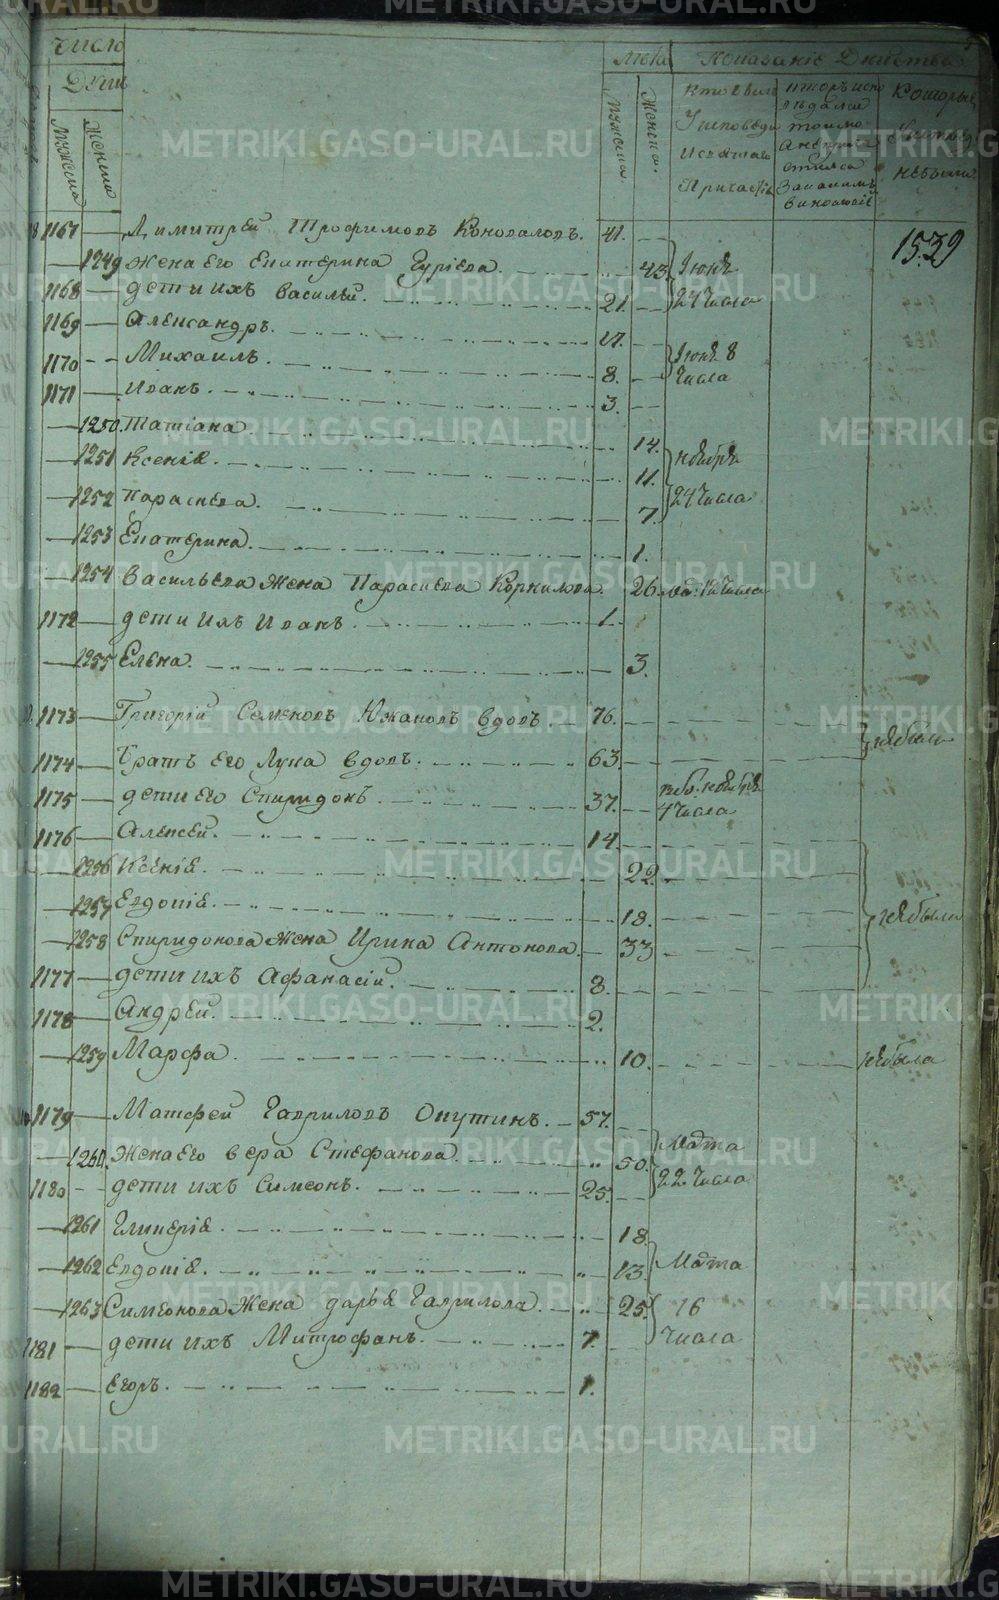 Число
Душъ
Мужеска
Женска
Лѣта
Мужеска
Женска
Показаніе Дѣйства
Кто были
Уисповеди
Исвятаго
Причастія
Которые
Небыли
1539
1167 — Димитрей Трофимовъ Коноваловъ. 41. —
— 1249 жена его Екатерина Гуріева. 43 Іюня
1168 — дети ихъ Василей. 21. — 24 Числа
1169 — Александръ. 17. —
1170 — Михаилъ. 8. — Іюня 8
1171 — Иванъ. 3. — Числа
— 1250. Татіана. 14.
— 1251 Ксенія. 11. ноября
— 1252 Параскева. 7. 24 Числа
— 1253 Екатерина. 1.
— 1254 Васильева жена Параскева Корнилова. 26.
1172 — дети ихъ Иванъ. 1.
— 1255 Елена. 3.
1173 — Григорій Семеновъ Южановъ вдовъ. 76. небыли
1174 — Братъ его Лука вдовъ. 63.
1175 — дети его Спиридонъ. 37. — ноября
4 Числа
1176 — Алексей. 14.
— 1256 Ксенія. 22.
— 1257 Евдокія. 18. небыли
— 1258 Спиридонова жена Ирина Антонова. 33
1177 — дети ихъ Афанасій. 8.
1178 — Андрей. 2.
— 1259 Марфа. 10. небыла
1179 — Матфей Гавриловъ Опутинъ. 57.
— 1260. жена его вера Стефанова. 50. Марта
1180 — дети ихъ Симеонъ. 25. 22 Числа
— 1261 Гликерія. 18.
— 1262 Евдокія. 13. Марта
— 1263 Симеонова жена дарья Гаврилова. 25. 16
1181 — дети ихъ Митрофанъ. 7. Числа
1182 — Егоръ. 1.
METRIKI.GASO-URAL.RU